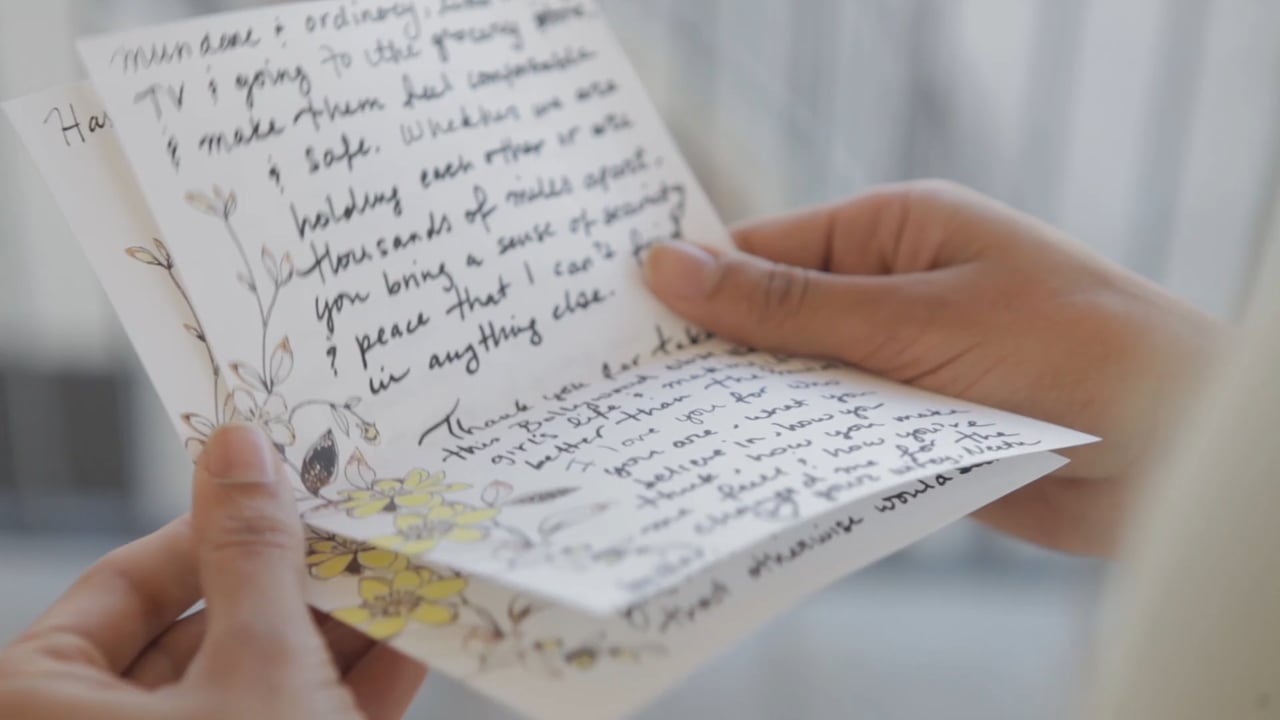 Ha
mundane & ordinary,
TV & going to the grocery store
& make them feel comfortable
& safe. Whether we are
holding each other or are
thousands of miles apart,
you bring a sense of security
& peace that I can't find
in anything else.
Thank you for
this Bollywood
girl's life & making
better than the
I love you for who
you are, what you
believe in, how you
think, how you make
me feel & how you're
changed me for the
otherwise would